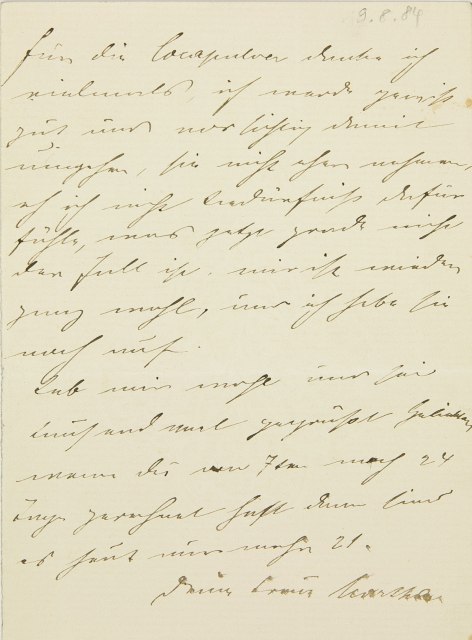 9.8.84
für die Cocapulver danke ich
vielmals, ich werde gewiß
gut und vorsichtig damit
umgehen, sie nicht eher nehmen,
eh ich nicht Bedürfniß dafür
fühle, was jetzt grade nicht
der Fall ist. mir ist wieder
ganz wohl, und ich hebe sie
noch auf.
Leb mir wohl und sei
tausend mal gegrüßt Geliebter,
wenn du am 7ten noch 24
Tage gerechnet hast dann sind
es heut nur mehr 21.
Deine treue Marthe